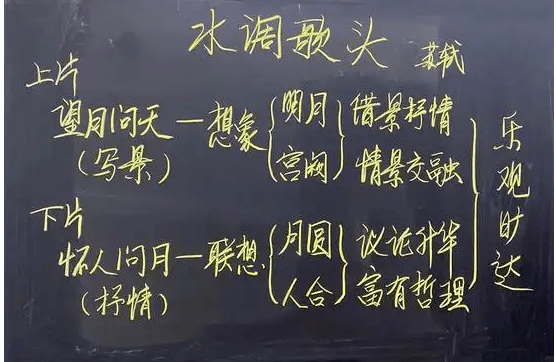 水调歌头 苏轼
上片
望月问天—想象{明月}借景抒情
(写景) 宫阙 情景交融
下片
怀人问月—联想{月圆}议论升华
(抒情) 人合 富有哲理
乐观旷达